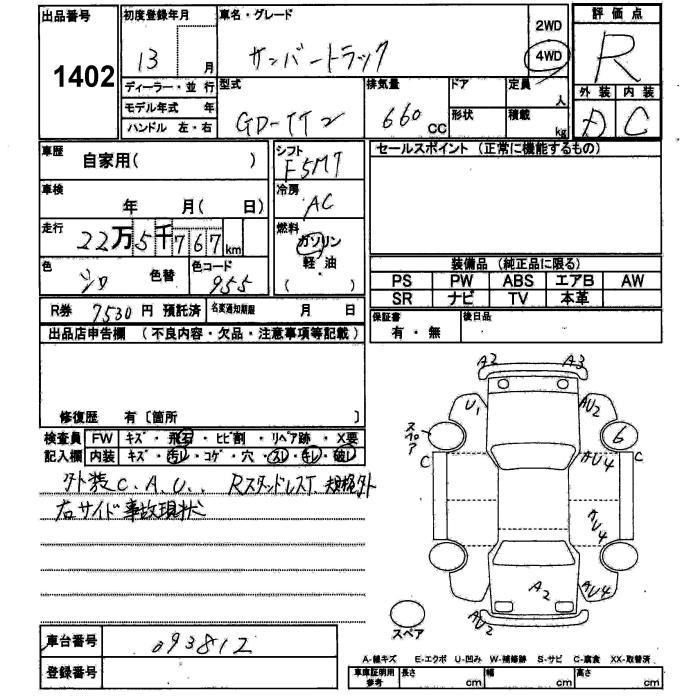 出品番号 初度登録年月 車名・グレード 2WD 評価点
1402 13 月 サンバートラック 4WD R
ディーラー・並行 型式 排気量 ドア 定員 人 外装 内装
モデル年式 年 GD-TT2 660 CC 形状 積載 kg A C
ハンドル 左・右
車歴 自家用( ) シフト F5MT セールスポイント (正常に機能するもの)
車検 年 月( 日) 冷房 AC
走行 22万5千767km 燃料 ガソリン
軽・油
( )
色 シロ 色替 色コード 955
装備品 (純正品に限る)
PS PW ABS エアB AW
SR ナビ TV 本革
R券 7530円 預託済 名変通知期限 月 日 保証書 有・無 後日品
出品店申告欄 (不良内容・欠品・注意事項等記載)
修復歴 有〔箇所 〕
検査員 FW キズ・飛石・ヒビ割・リペア跡・X要
記入欄 内装 キズ・汚レ・コゲ・穴・スレ・キレ・破レ
外装C.A.U.、RスタッドレスT、規格外
右サイド事故現状
A2 A3
U1 AU2
スペア 6
C AU4 C
AU4
A2 AU4
AU2
スペア
車台番号 093812
登録番号
A-線キズ E-エクボ U-凹み W-補修跡 S-サビ C-腐食 XX-取替済
車庫証明用参考 長さ cm 幅 cm 高さ cm